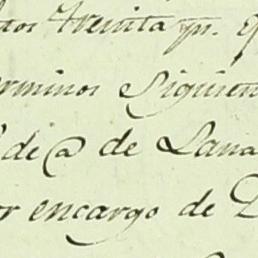 tos Treinta yn. q
erminos Siguien
de @ de Lana
or encargo de D